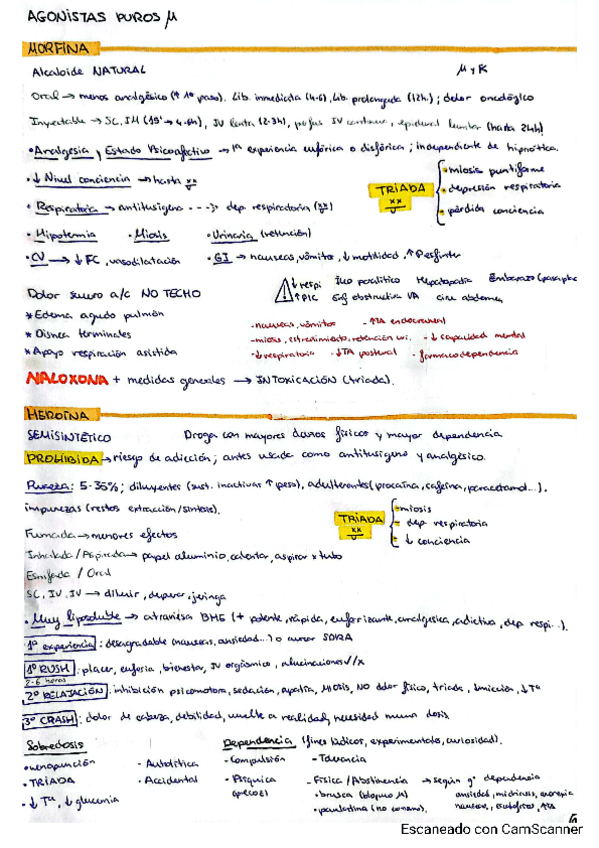 AGONISTAS PUROS μ
MORFINA
Alcaloide NATURAL
μ y K
Oral → menos analgésico (↑ 1º paso). Lib. inmediata (4-6), Lib. prolongada (12h.); dolor oncológico
Inyectable → SC, IM (15' → 4-6h), IV lenta (2-3h), perfus IV continua, epidural lumbar (hasta 24h)
• Analgesia y Estado Psicoafectivo → 1ª experiencia eufórica o disfórica; independiente de hipnótica.
• ↓ Nivel conciencia → hasta xx
• Respiratoria → antitusígeno ---→ dep. respiratoria (xx)
TRIADA xx
• miosis puntiforme
• depresión respiratoria
• pérdida conciencia
• Hipotermia • Miosis • Urinaria (retención)
• CV → ↓ FC, vasodilatación • GI → nauseas, vómitos, ↓ motilidad, ↑ P esfínter
Dolor severo a/c NO TECHO
* Edema agudo pulmón
* Disnea terminales
* Apoyo respiración asistida
↓ respi Íleo paralítico Hepatopatía Embarazo
↑ PIC Enf obstructiva VA ciru abdomen
- nauseas, vómitos - ↑TA endocraneal
- miosis, estreñimiento, retención uri. - ↓ capacidad mental
- ↓ respiratoria - ↓TA postural - farmacodependencia
NALOXONA + medidas generales → INTOXICACIÓN (triada).
HEROÍNA
SEMISINTÉTICO Droga con mayores daños físicos y mayor dependencia
PROHIBIDA → riesgo de adicción; antes usada como antitusígeno y analgésico.
Pureza: 5-35%; diluyentes (sust. inactivas ↑ peso), adulterantes (procaína, cafeína, paracetamol...).
impurezas (restos extracción/síntesis).
TRIADA xx
• miosis
• dep respiratoria
• ↓ conciencia
Fumada → menores efectos
Inhalada / Aspirada → papel aluminio, calentar, aspirar x tubo
Esnifada / Oral
SC, IV, IV → diluir, depurar, jeringa
• Muy liposoluble → atraviesa BHE (+ potente, rápida, euforizante, analgésica, adictiva, dep respi...).
1º experiencia: desagradable (nauseas, ansiedad...) o
1º RUSH: placer, euforia, bienestar, IV orgásmico, alucinaciones √/x
2-6 horas
2º RELAJACIÓN: inhibición psicomotora, sedación, apatía, MIOSIS, NO dolor físico, triada, ↓Tª
3º CRASH: dolor de cabeza, debilidad, vuelta a realidad, necesidad nueva dosis.
Sobredosis
• venopunción - Autolítica
• TRIADA - Accidental
• ↓ Tª, ↓ glucemia
Dependencia (fines lúdicos, experimentales, curiosidad).
- Compulsión - Tolerancia
- Psíquica - Física / Abstinencia → según gº dependencia
(precoz) • brusca (bloqueo μ) ansiedad, midriasis, anorexia
• paulatina (no consumo), nauseas, escalofríos, ↑TA
Escaneado con CamScanner